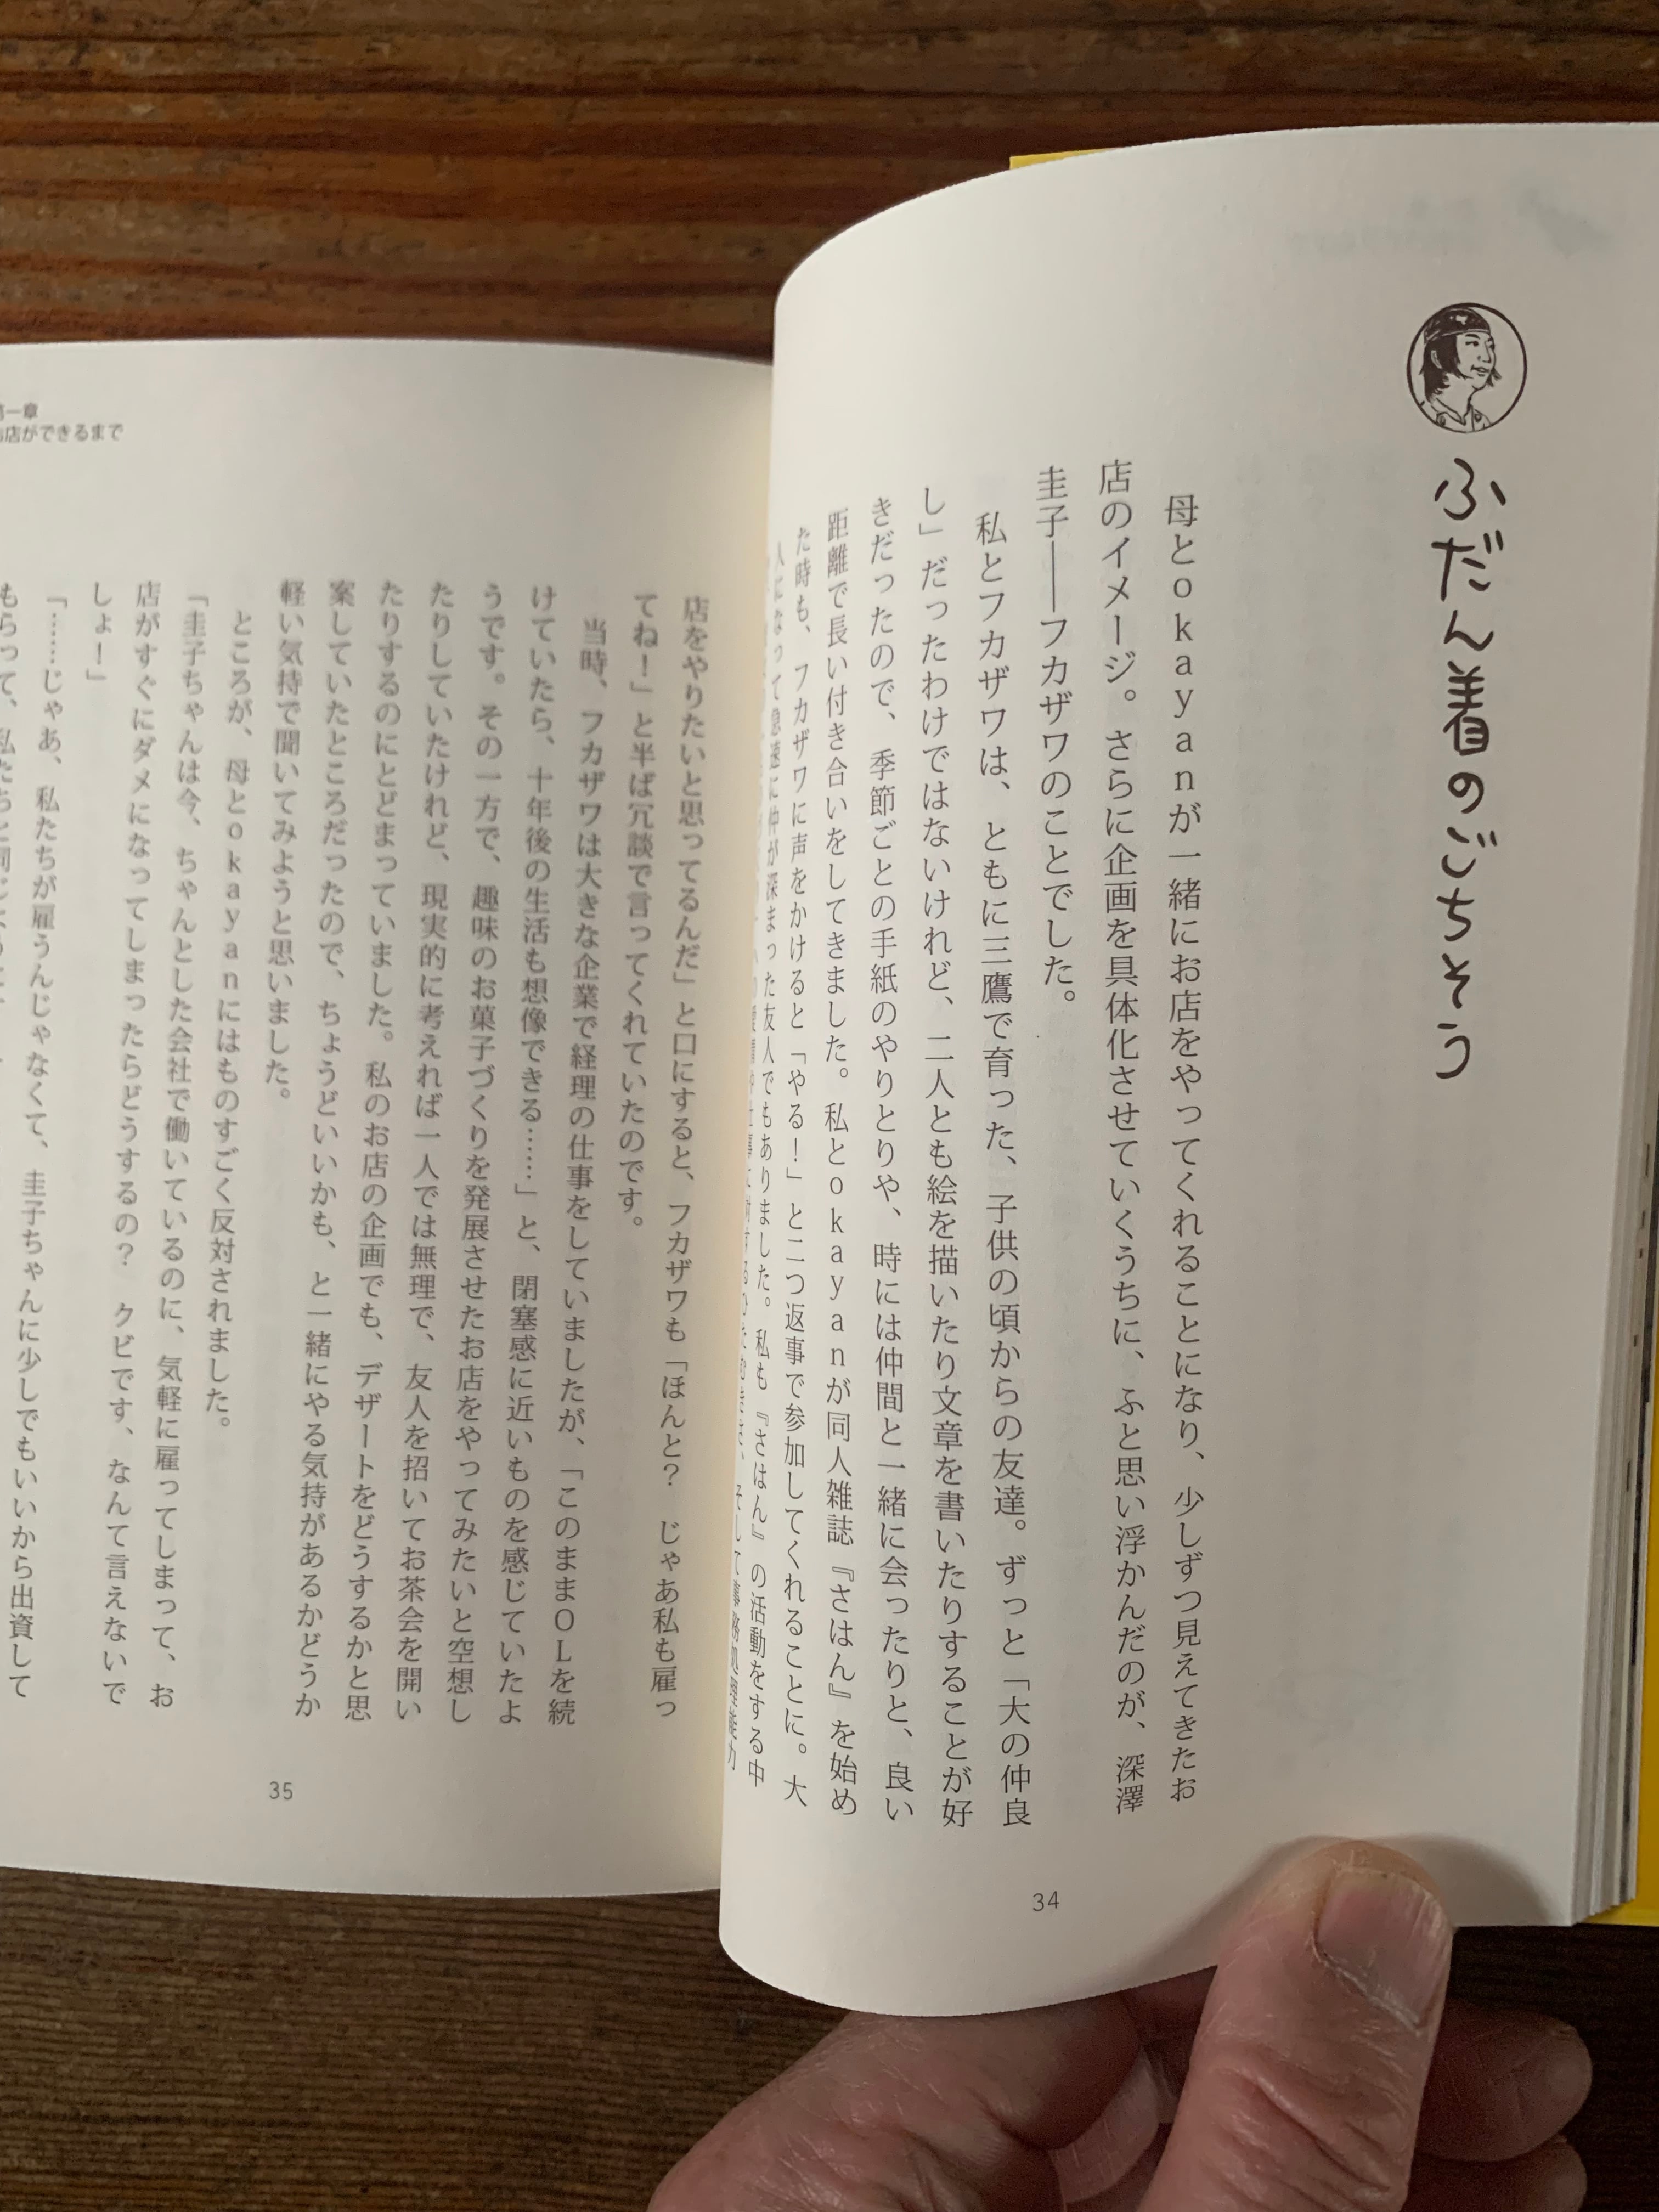 ふだん着のごちそう
母とokayanが一緒にお店をやってくれることになり、少しずつ見えてきたお
店のイメージ。さらに企画を具体化させていくうちに、ふと思い浮かんだのが、深澤
圭子——フカザワのことでした。
私とフカザワは、ともに三鷹で育った、子供の頃からの友達。ずっと「大の仲良
し」だったわけではないけれど、二人とも絵を描いたり文章を書いたりすることが好
きだったので、季節ごとの手紙のやりとりや、時には仲間と一緒に会ったりと、良い
距離で長い付き合いをしてきました。私とokayanが同人雑誌『さはん』を始め
た時も、フカザワに声をかけると「やる！」と二つ返事で参加してくれることに。大
人になって急速に仲が深まった友人でもありました。私も『さはん』の活動をする中
34
第一章
お店ができるまで
店をやりたいと思ってるんだ」と口にすると、フカザワも「ほんと？　じゃあ私も雇っ
てね！」と半ば冗談で言ってくれていたのです。
当時、フカザワは大きな企業で経理の仕事をしていましたが、「このままOLを続
けていたら、十年後の生活も想像できる……」と、閉塞感に近いものを感じていたよ
うです。その一方で、趣味のお菓子づくりを発展させたお店をやってみたいと空想し
たりしていたけれど、現実的に考えれば一人では無理で、友人を招いてお茶会を開い
たりするのにとどまっていました。私のお店の企画でも、デザートをどうするかと思
案していたところだったので、ちょうどいいかも、と一緒にやる気持があるかどうか
軽い気持で聞いてみようと思いました。
ところが、母とokayanにはものすごく反対されました。
「圭子ちゃんは今、ちゃんとした会社で働いているのに、気軽に雇ってしまって、お
店がすぐにダメになってしまったらどうするの？　クビです、なんて言えないで
しょ！」
「……じゃあ、私たちが雇うんじゃなくて、圭子ちゃんに少しでもいいから出資して
もらって、私たちと同じように
35